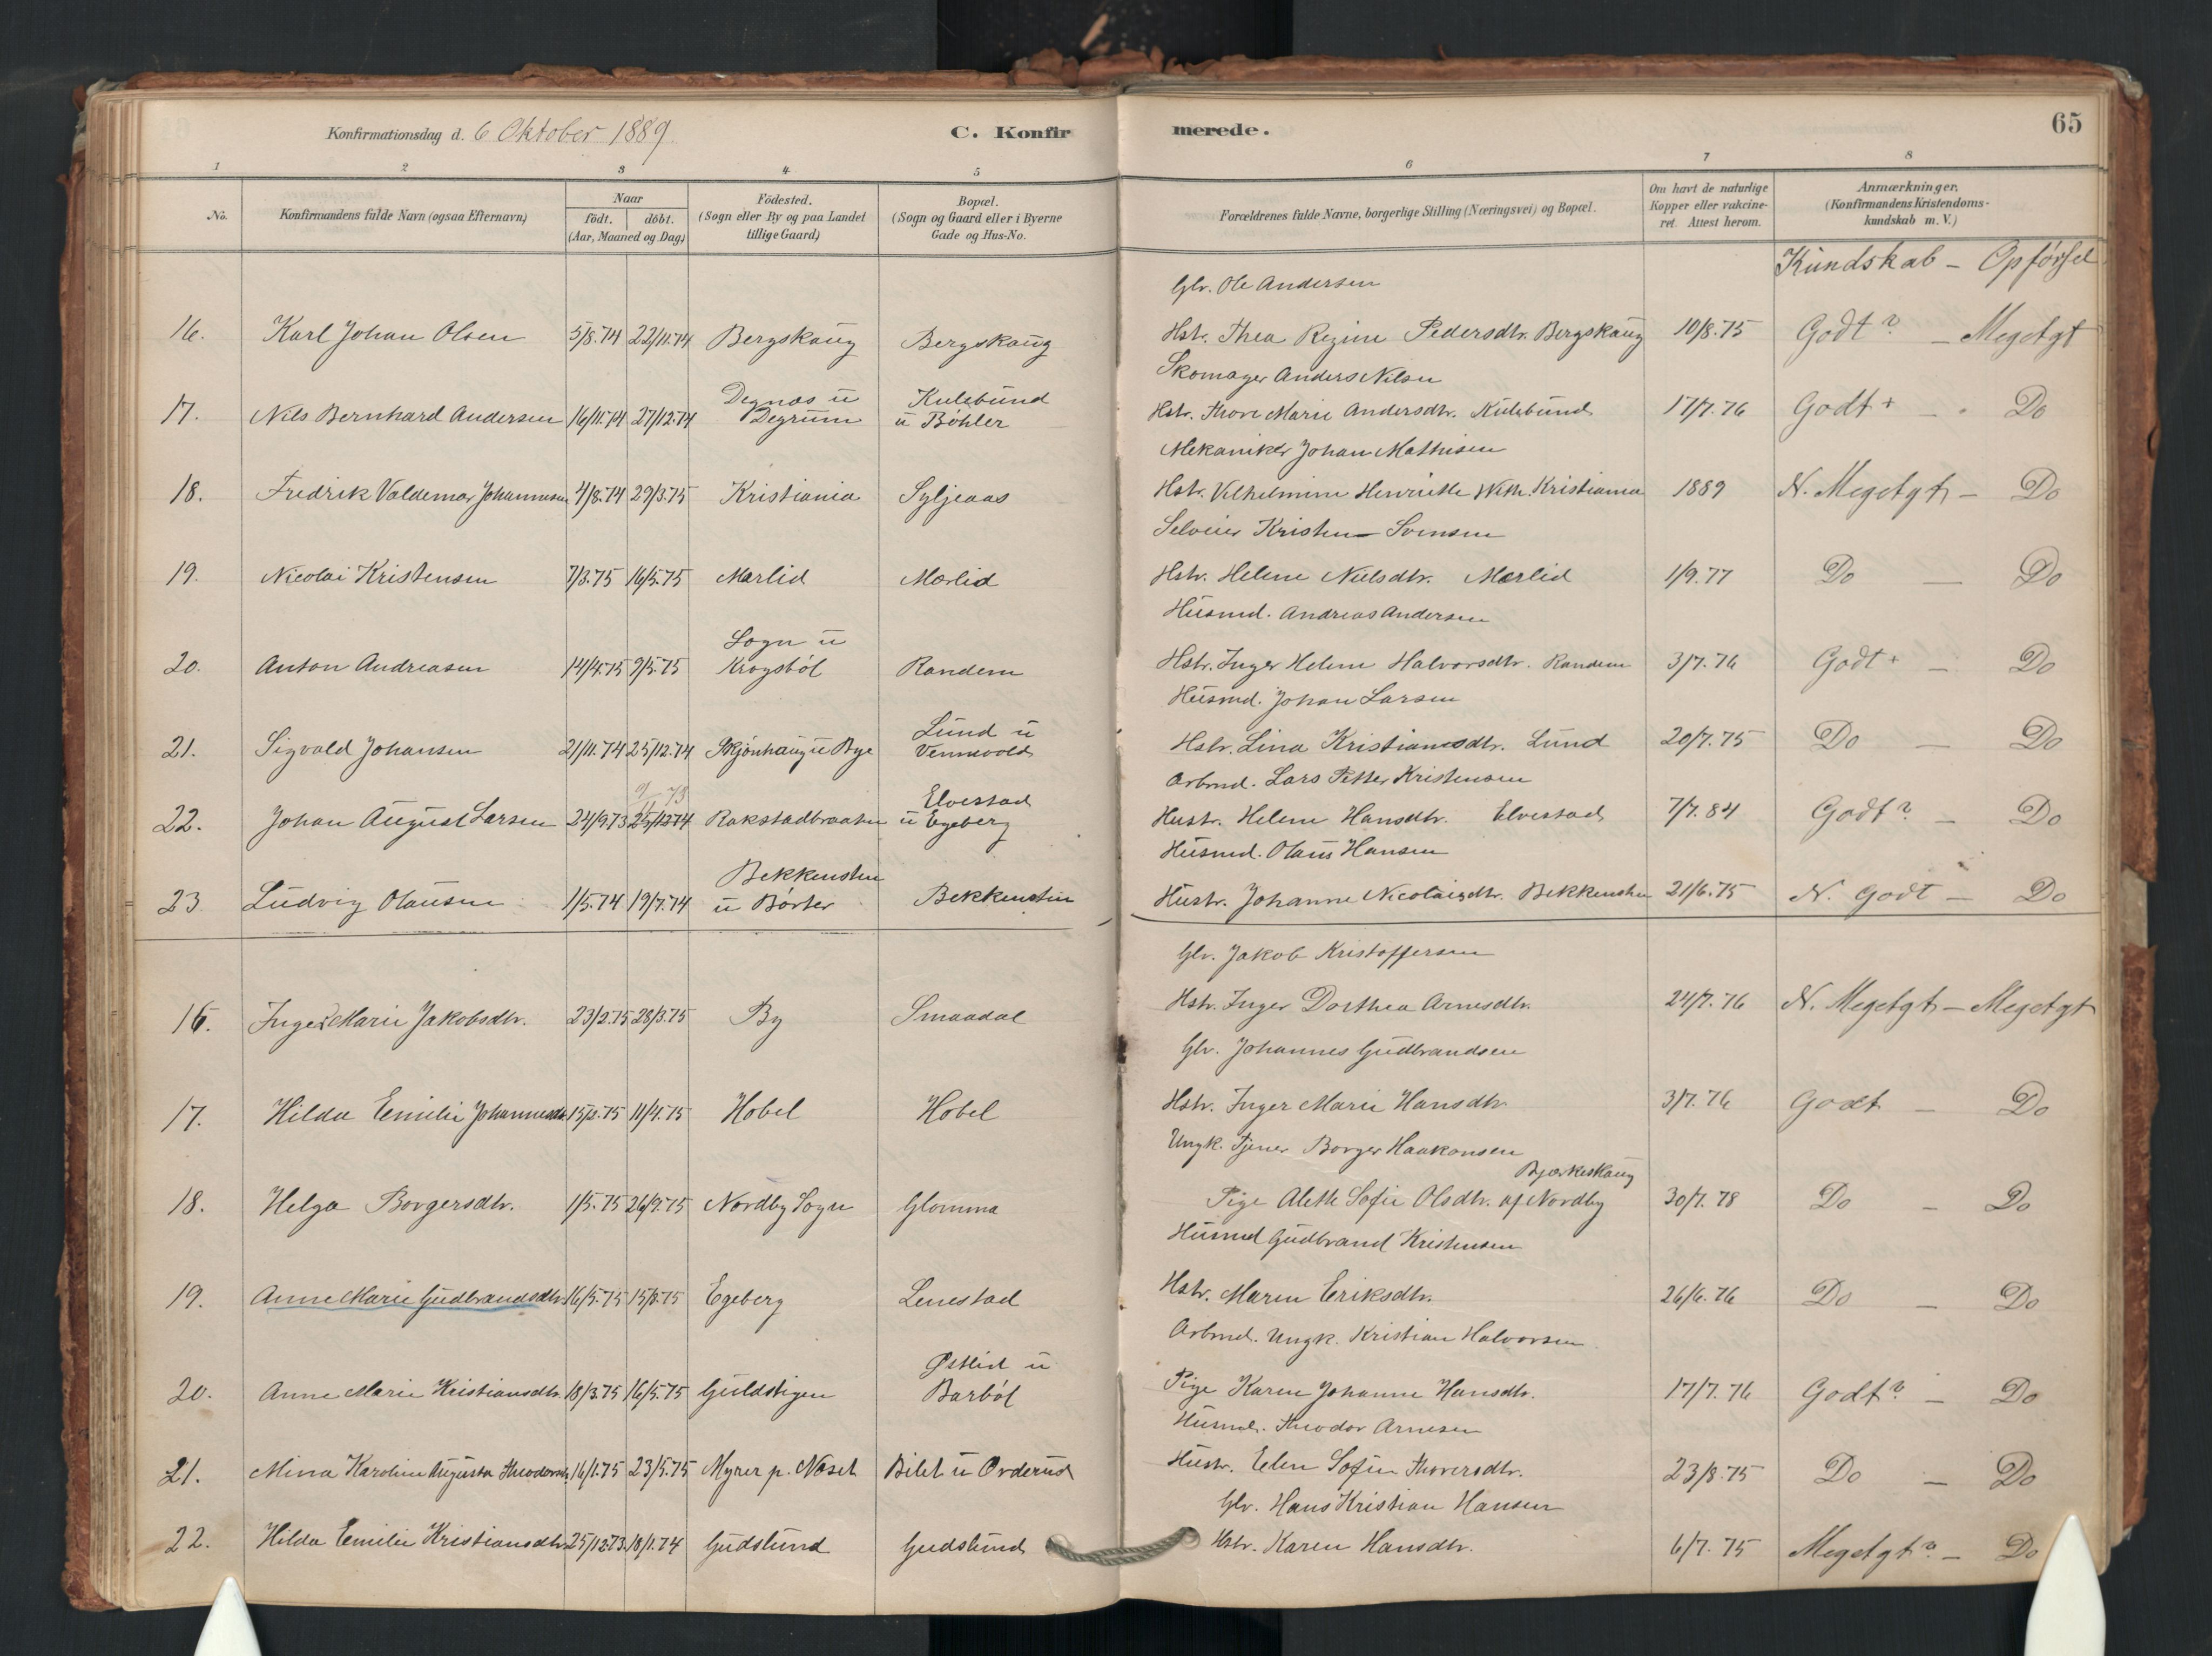 Konfirmationsdag d. 6 Oktober 1889.
C. Konfirmerede.
65
1 2 3 4 5 6 7 8
No.
Konfirmandens fulde Navn (ogsaa Efternavn)
Naar
födt. döbt.
(Aar, Maaned og Dag)
Födested.
(Sogn eller By og paa Landet
tillige Gaard)
Bopæl.
(Sogn og Gaard eller i Byerne
Gade og Hus-No.
Forældrenes fulde Navne, borgerlige Stilling (Næringsvei) og Bopæl.
Om havt de naturlige
Kopper eller vakcine-
ret. Attest herom.
Anmærkninger.
(Konfirmandens Kristendoms-
kundskab m. V.)
Kundskab - Opførsel
Glr. Ole Andersen
16. Karl Johan Olsen 5/8.74 22/11.74 Bergskaug Bergskaug Hstr. Thea Regine Pedersdtr. Bergskaug 10/8.75 Godt? - Megetgt
Skomager Anders Nilsen
Degnæs u Kulebund
17. Nils Bernhard Andersen 16/11.74 27/12.74 Degrum u Bøhler Hstr. Thore Marie Andersdtr. Kulebund 17/7.76 Godt+ - Do
Mekaniker Johan Mathisen
18. Fredrik Valdemar Johannesen 4/8.74 29/3.75 Kristiania Syljeaas Hstr. Vilhelmine Henriette With. Kristiania 1889 N. Megetgt - Do
Selveier Kristen Svensen
19. Nicolai Kristensen 7/3.75 16/5.75 Mørlid Mørlid Hstr. Helene Nielsdtr. Mørlid 1/9.77 Do - Do
Husmd. Andreas Andersen
Sogn u
20. Anton Andreasen 14/4.75 9/5.75 Krogsbøl Randem Hstr. Inger Helene Halvorsdtr. Randem 3/7.76 Godt+ - Do
Husmd. Johan Larsen
Lund u
21. Sigvald Johansen 21/11.74 25/12.74 Skjønhaug u Bye Vennevold Hstr. Lina Kristiansdtr. Lund 20/7.75 Do - Do
Arbmd. Lars Petter Kristensen
9/11 73
Elvestad
22. Johan August Larsen 24/9.73 25/12.74 Rakstadbraaten u Egeberg Hustr. Helene Hansdtr. Elvestad 7/7.84 Godt? - Do
Husmd. Olaus Hansen
Bekkensten
23 Ludvig Olausen 1/5.74 19/7.74 u Børter Bekkensten Hustr. Johanne Nicolaisdtr. Bekkensten 21/6.75 N. Godt - Do
Glr. Jakob Kristoffersen
16. Inger Marie Jakobsdtr. 23/2.75 28/3.75 By Smaadal Hstr. Inger Dorthea Arnesdtr. 24/7.76 N. Megetgt - Megetgt
Glr. Johannes Gudbrandsen
17. Hilda Emilie Johannesdtr. 15/2.75 11/4.75 Hobel Hobel Hstr. Inger Marie Hansdtr. 3/7.76 Godt - Do
Ungk. Tjener Borger Haakonsen
Bjerkeskaug
18. Helga Borgersdtr. 1/5.75 26/9.75 Nordby Sogn Glomma Pige Alette Sofie Olsdtr. af Nordby 30/7.78 Do - Do
Husmd Gudbrand Kristensen
19. Anne Marie Gudbrandsdtr. 16/5.75 15/8.75 Egeberg Lenestad Hstr. Maren Eriksdtr. 26/6.76 Do - Do
Arbmd. Ungk. Kristian Halvorsen
Østlid u
20. Anne Marie Kristiansdtr. 18/3.75 16/5.75 Guldstigen Barbøl Pige Karen Johanne Hansdtr. 17/7.76 Godt? - Do
Husmd. Theodor Arnesen
21. Mina Karoline Augusta Theodorsdtr. 16/1.75 23/5.75 Myrer p. Næset Bilet u Ovderud Hustr. Elen Sofie Thoversdtr. 23/8.75 Do - Do
Glr. Hans Kristian Hansen
22. Hilda Emilie Kristiansdtr. 25/12.73. 18/1.74 Gudslund Gudslund Hstr. Karen Hansdtr. 6/7.75 Megetgt? - Do